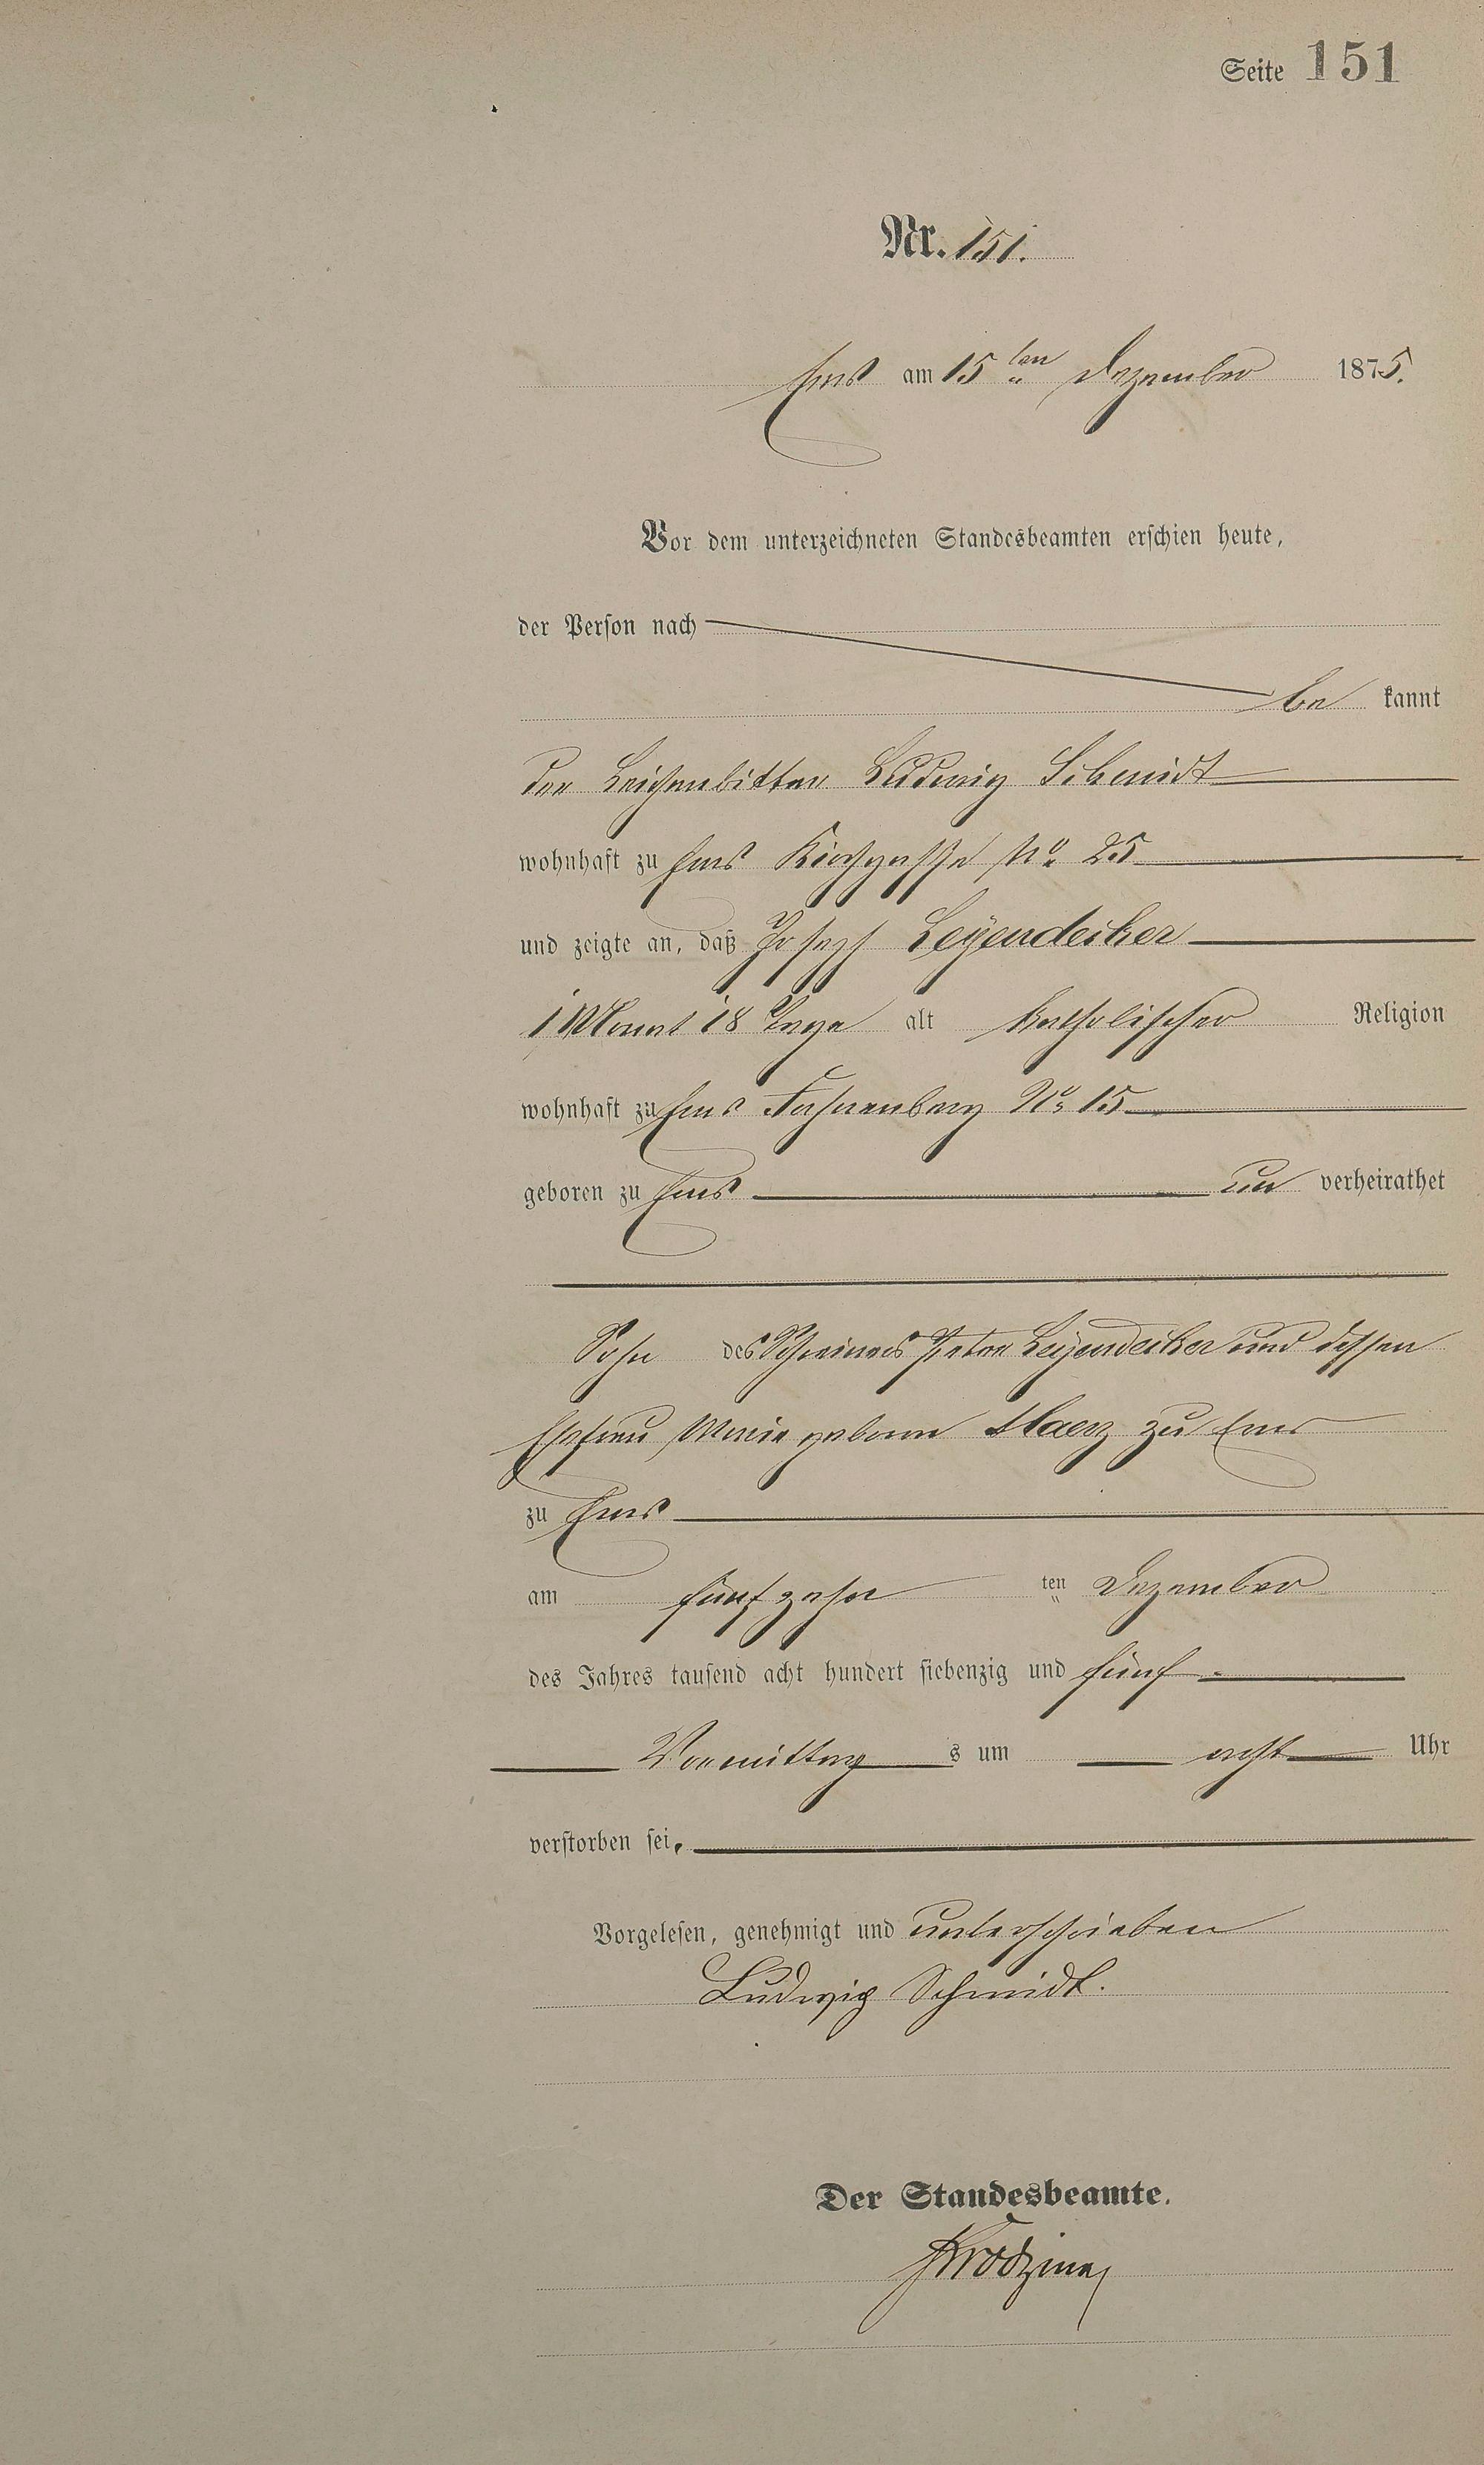 Seite 151
Nr. 151.
Ems am 15ten Dezember 1875.
Vor dem unterzeichneten Standesbeamten erschien heute,
der Person nach
be kannt
der Leichenbitter Ludwig Schmidt
wohnhaft zu Ems Kirchgasse No 25
und zeigte an, daß Joseph Leyendecker
1 Monat 18 Tage alt katholischer Religion
wohnhaft zu Ems No 15
geboren zu Ems un verheirathet
Sohn des Schreiners Peter Leyendecker und dessen
Ehefrau Marie geborne zu Ems
zu Ems
am fünfzehn ten Dezember
des Jahres tausend acht hundert siebenzig und fünf
Vormittag s um acht Uhr
verstorben sei.
Vorgelesen, genehmigt und unterschrieben
Ludwig Schmidt.
Der Standesbeamte.